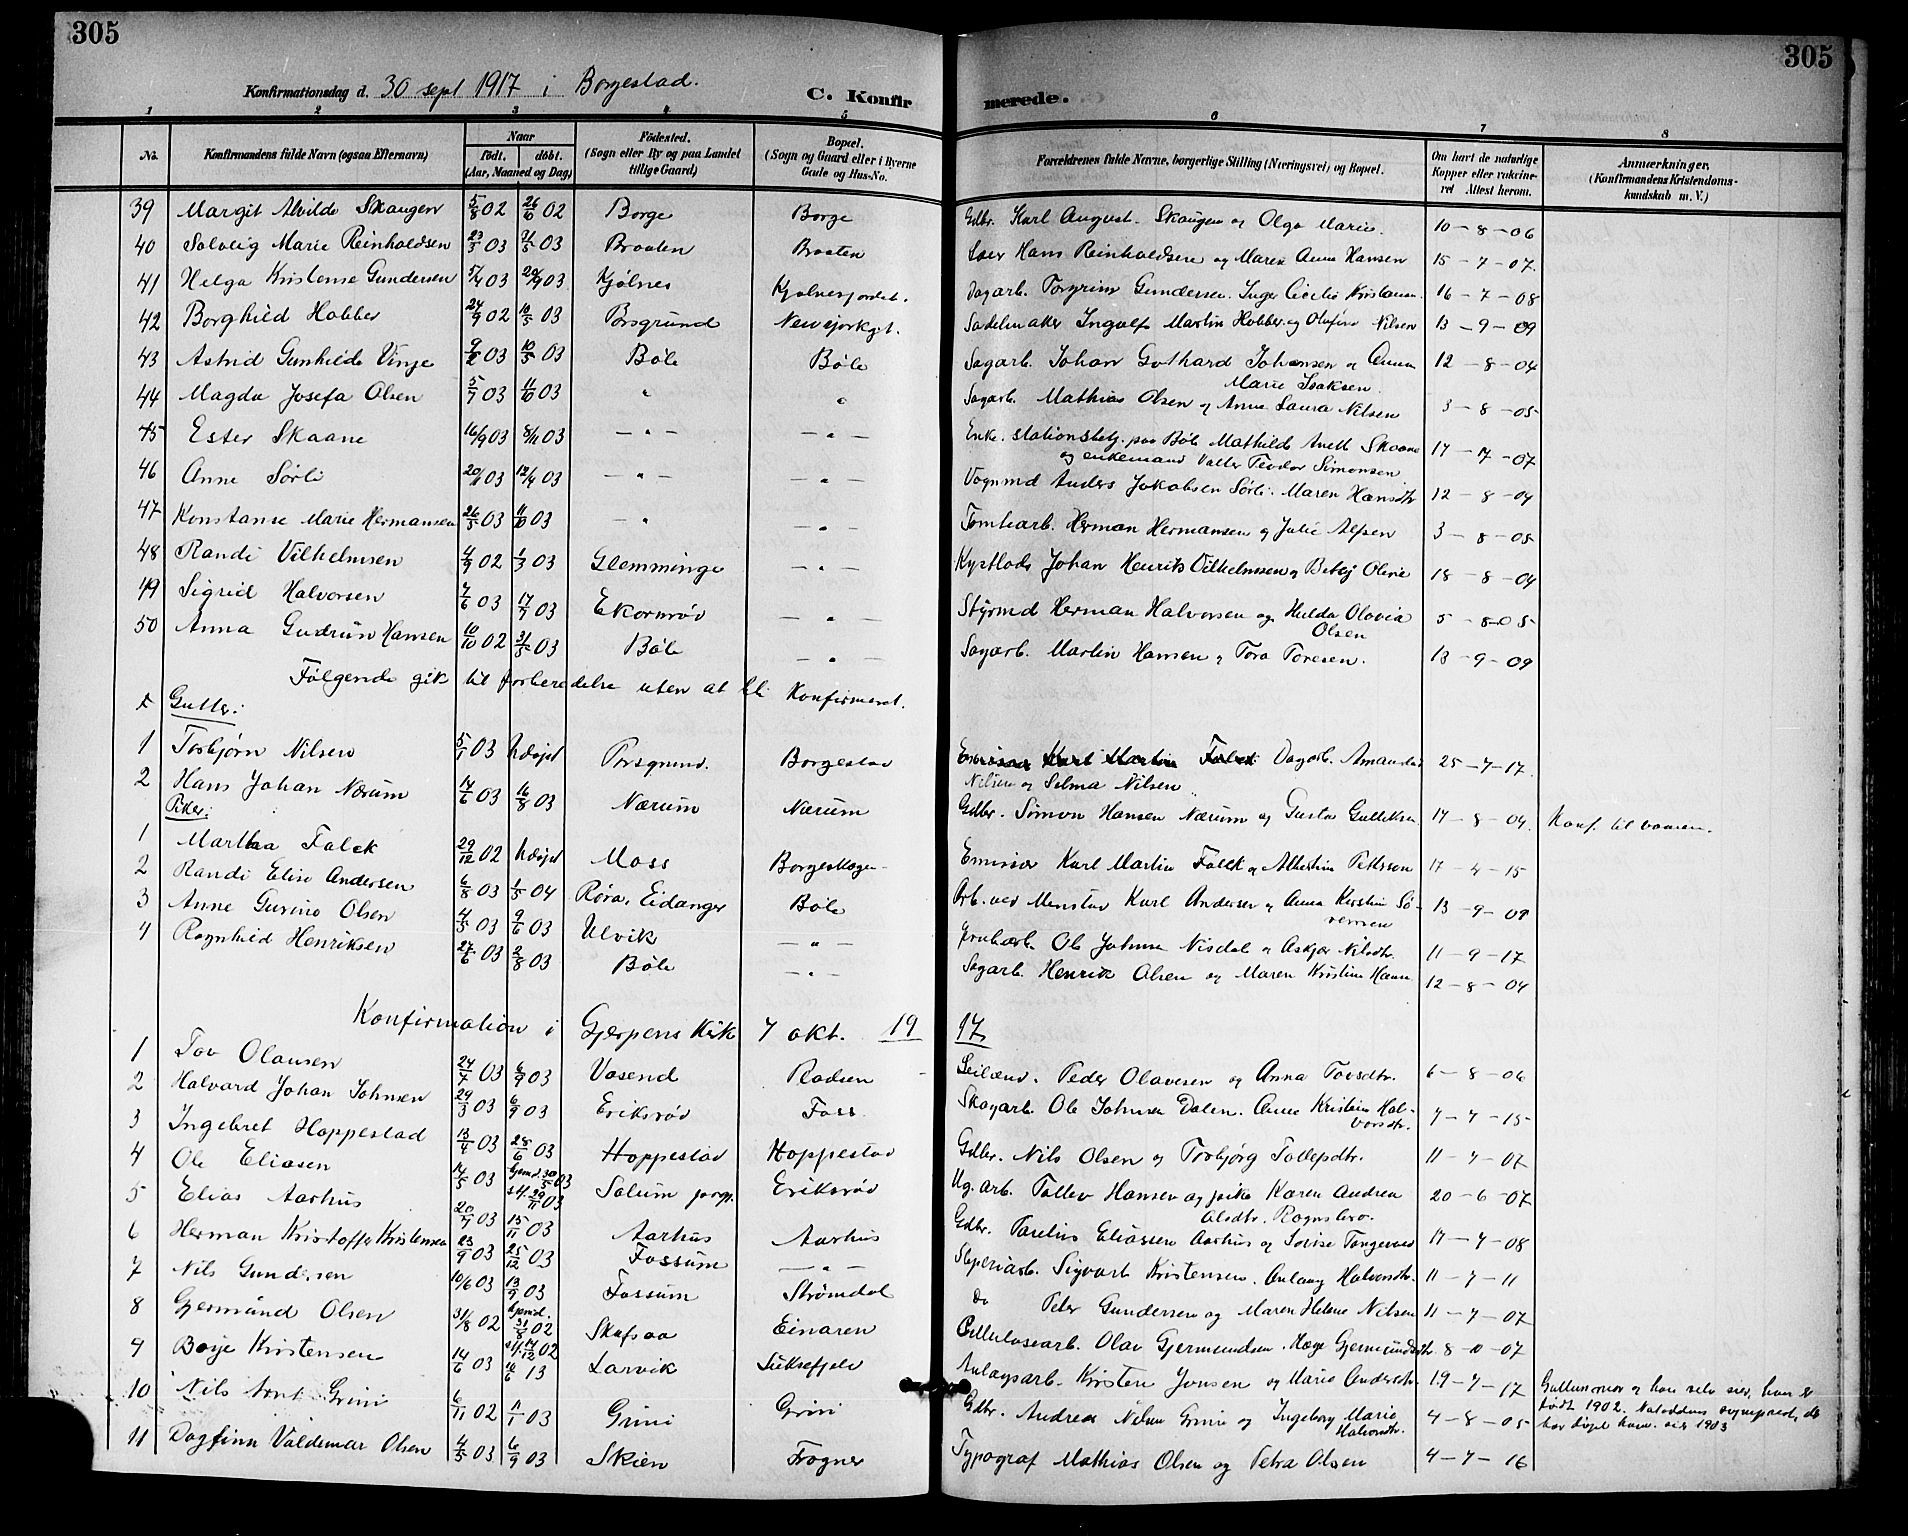 305
305
Konfirmationsdag d. 30 sept 1917 i Borgestad.
C. Konfirmerede.
1 2 3 4 5 6 7 8
No. Konfirmandens fulde Navn (ogsaa Efternavn) Naar født. døbt. (Aar, Maaned og Dag) Fødested. (Sogn eller By og paa Landet tillige Gaard) Bopæl. (Sogn og Gaard eller i Byerne Gade og Hus-No. Forældrenes fulde Navne, borgerlige Stilling (Næringsvei) og Bopæl. Om havt de naturlige Kopper eller vaccineret. Attest herom. Anmærkninger. (Konfirmandens Kristendomskundskab m. V.)
39 Margit Alvilde Skaugen 5/8 02 26/6 02 Borge Borge Gdbr. Karl August Skaugen og Olga Marie. 10-8-06
40 Solveig Marie Reinholdsen 23/3 03 31/5 03 Braaten Braaten Hans Reinholdsen og Maren Anna Hansen 15-7-07.
41 Helga Kristense Gundersen 5/4 03 03 Kjølnes Kjølnesjordet. Dagarb. Torgrim Gundersen. Inger Cecilie 16-7-08
42 Borghild Hobber 24/9 02 10/5 03 Porsgrund Newejorkgt. Sadelmaker Ingolf Martin Hobber og Olufine Nilsen 13-9-09
43 Astrid Gunhilde Vinje 03 10/5 03 Bøle Bøle Sagarb. Johan Gothard Johansen og Anna
Marie Isaksen 12-8-04
44 Magda Josefa Olsen 5/7 03 11/10 03 " " Sagarb. Mathias Olsen og Anna Laura Nilsen 3-8-05
45 Ester Skaane 16/9 03 8/11 03 -"- -"- Enke. stationsbetj. paa Bøle Mathilde Skaane
og enkemand Valter Teodor Simonsen 17-7-07
46 Anne Sørli 20/1 03 12/4 03 -"- -"- Vognmd Anders Jakobsen Sørli. Maren Hansdtr 12-8-04
47 Konstanse Marie Hermansen 26/5 03 11/10 03 -"- -"- Tomtearb. Herman Hermansen og Julie Alfsen 3-8-05
48 Randi Vilhelmsen 4/9 02 1/3 03 Glemminge -"- Kystlods Johan Henrik Vilhelmsen og Betsy Oline 18-8-04
49 Sigrid Halvorsen 7/6 03 17/7 03 Ekornrød -"- Styrmd Herman Halvorsen og Hulda Olavia
Olsen 5-8-05
50 Anna Gudrun Hansen 10/10 02 31/5 03 Bøle -"- Sagarb. Martin Hansen og Tora Toresen. 13-9-09
Følgende gik til forberedelse uten at bli Konfirmeret.
Gutter:
1 Torbjørn Nilsen 5/1 03 udøpt Porsgrund. Borgestad Dagarb. Amandus
Nilsen og Selma Nilsen 25-7-17.
2 Hans Johan Nærum 14/6 03 16/8 03 Nærum Nærum Gdbr. Simon Hansen Nærum og Gusta Gulliksen 17-8-04. Konf. til vaaren.
Piker:
1 Martha Falck 29/12 02 udøpt Moss Borgeskogen Emissær Karl Martin Falck og Albertine Pettersen 17-4-15
2 Randi Elise Andersen 6/8 03 1/5 04 Røra, Eidanger Bøle Arb. ved Menstad Karl Andersen og Anna Kirstine Sø-
rensen 13-9-09
3 Anne Gurine Olsen 4/3 03 9/6 03 Ulvik -"- Ole Johnsen Nisdal og Askjer Nilsdtr. 11-9-17
4 Ragnhild Henriksen 27/6 03 2/8 03 Bøle -"- Sagarb. Henrik Olsen og Maren Kristine Hansen 12-8-04
Konfirmation i Gjerpens Kirke 7 okt. 1917.
1 Tov Olausen 24/7 03 6/9 03 Vasend Rødsen Leilænd. Peder Olavesen og Anna Tovsdtr. 6-8-06
2 Halvard Johan Johnsen 29/3 03 6/9 03 Eriksrød Foss Skogarb. Ole Johnsen Dalen. Anne Kristine Hal-
vorsdtr. 7-7-15
3 Ingebret Hoppestad 13/4 03 28/6 03 Hoppestad Hoppestad Gdbr. Nils Olsen og Torbjørg Tollefsdtr. 11-7-07
4 Ole Eliasen 14/5 03 hjemd. 30/5 03
st. 29/11 03 Solum prgj. Eriksrød Ug. arb. Tollev Hansen og pike Karen Andrea
Olsdtr. Rognsbro. 20-6-07
5 Elias Aarhus 20/9 03 15/11 03 Aarhus Aarhus Gdbr. Eliassen Aarhus og Lovise Tangerud 17-7-08
6 Herman Kristoffer Kristensen 23/9 03 25/12 03 Fossum -"- Sliperiarb. Sigvart Kristensen. Anlaug Halvorsdtr. 11-7-11
7 Nils Gundersen 10/6 03 13/9 03 Fossum Strømdal Do Peter Gundersen og Maren Helene Nilsen 11-7-07
8 Gjermund Olsen 31/8 02 hjemd. 31/8 02
st. 17/12 02 Skafsaa Einaren Cellulosearb. Olav Gjermundsen. Hæge Gjermundsdtr. 8-10-07
9 Børje Kristensen 14/6 03 16/6 13 Larvik Luksefjeld Anlægsarb. Kristen Jonsen og Marie Andersdtr. 19-7-17
født 1902. Notoddens
1903
10 Nils Arnt Grini 6/11 02 1/1 03 Grini Grini Gdbr. Andreas Nilsen Grini og Ingeborg Marie
Halvorsdtr. 4-8-05
11 Dagfinn Valdemar Olsen 4/5 03 6/9 03 Skien Frogner Typograf Mathias Olsen og Petra Olsen 4-7-16